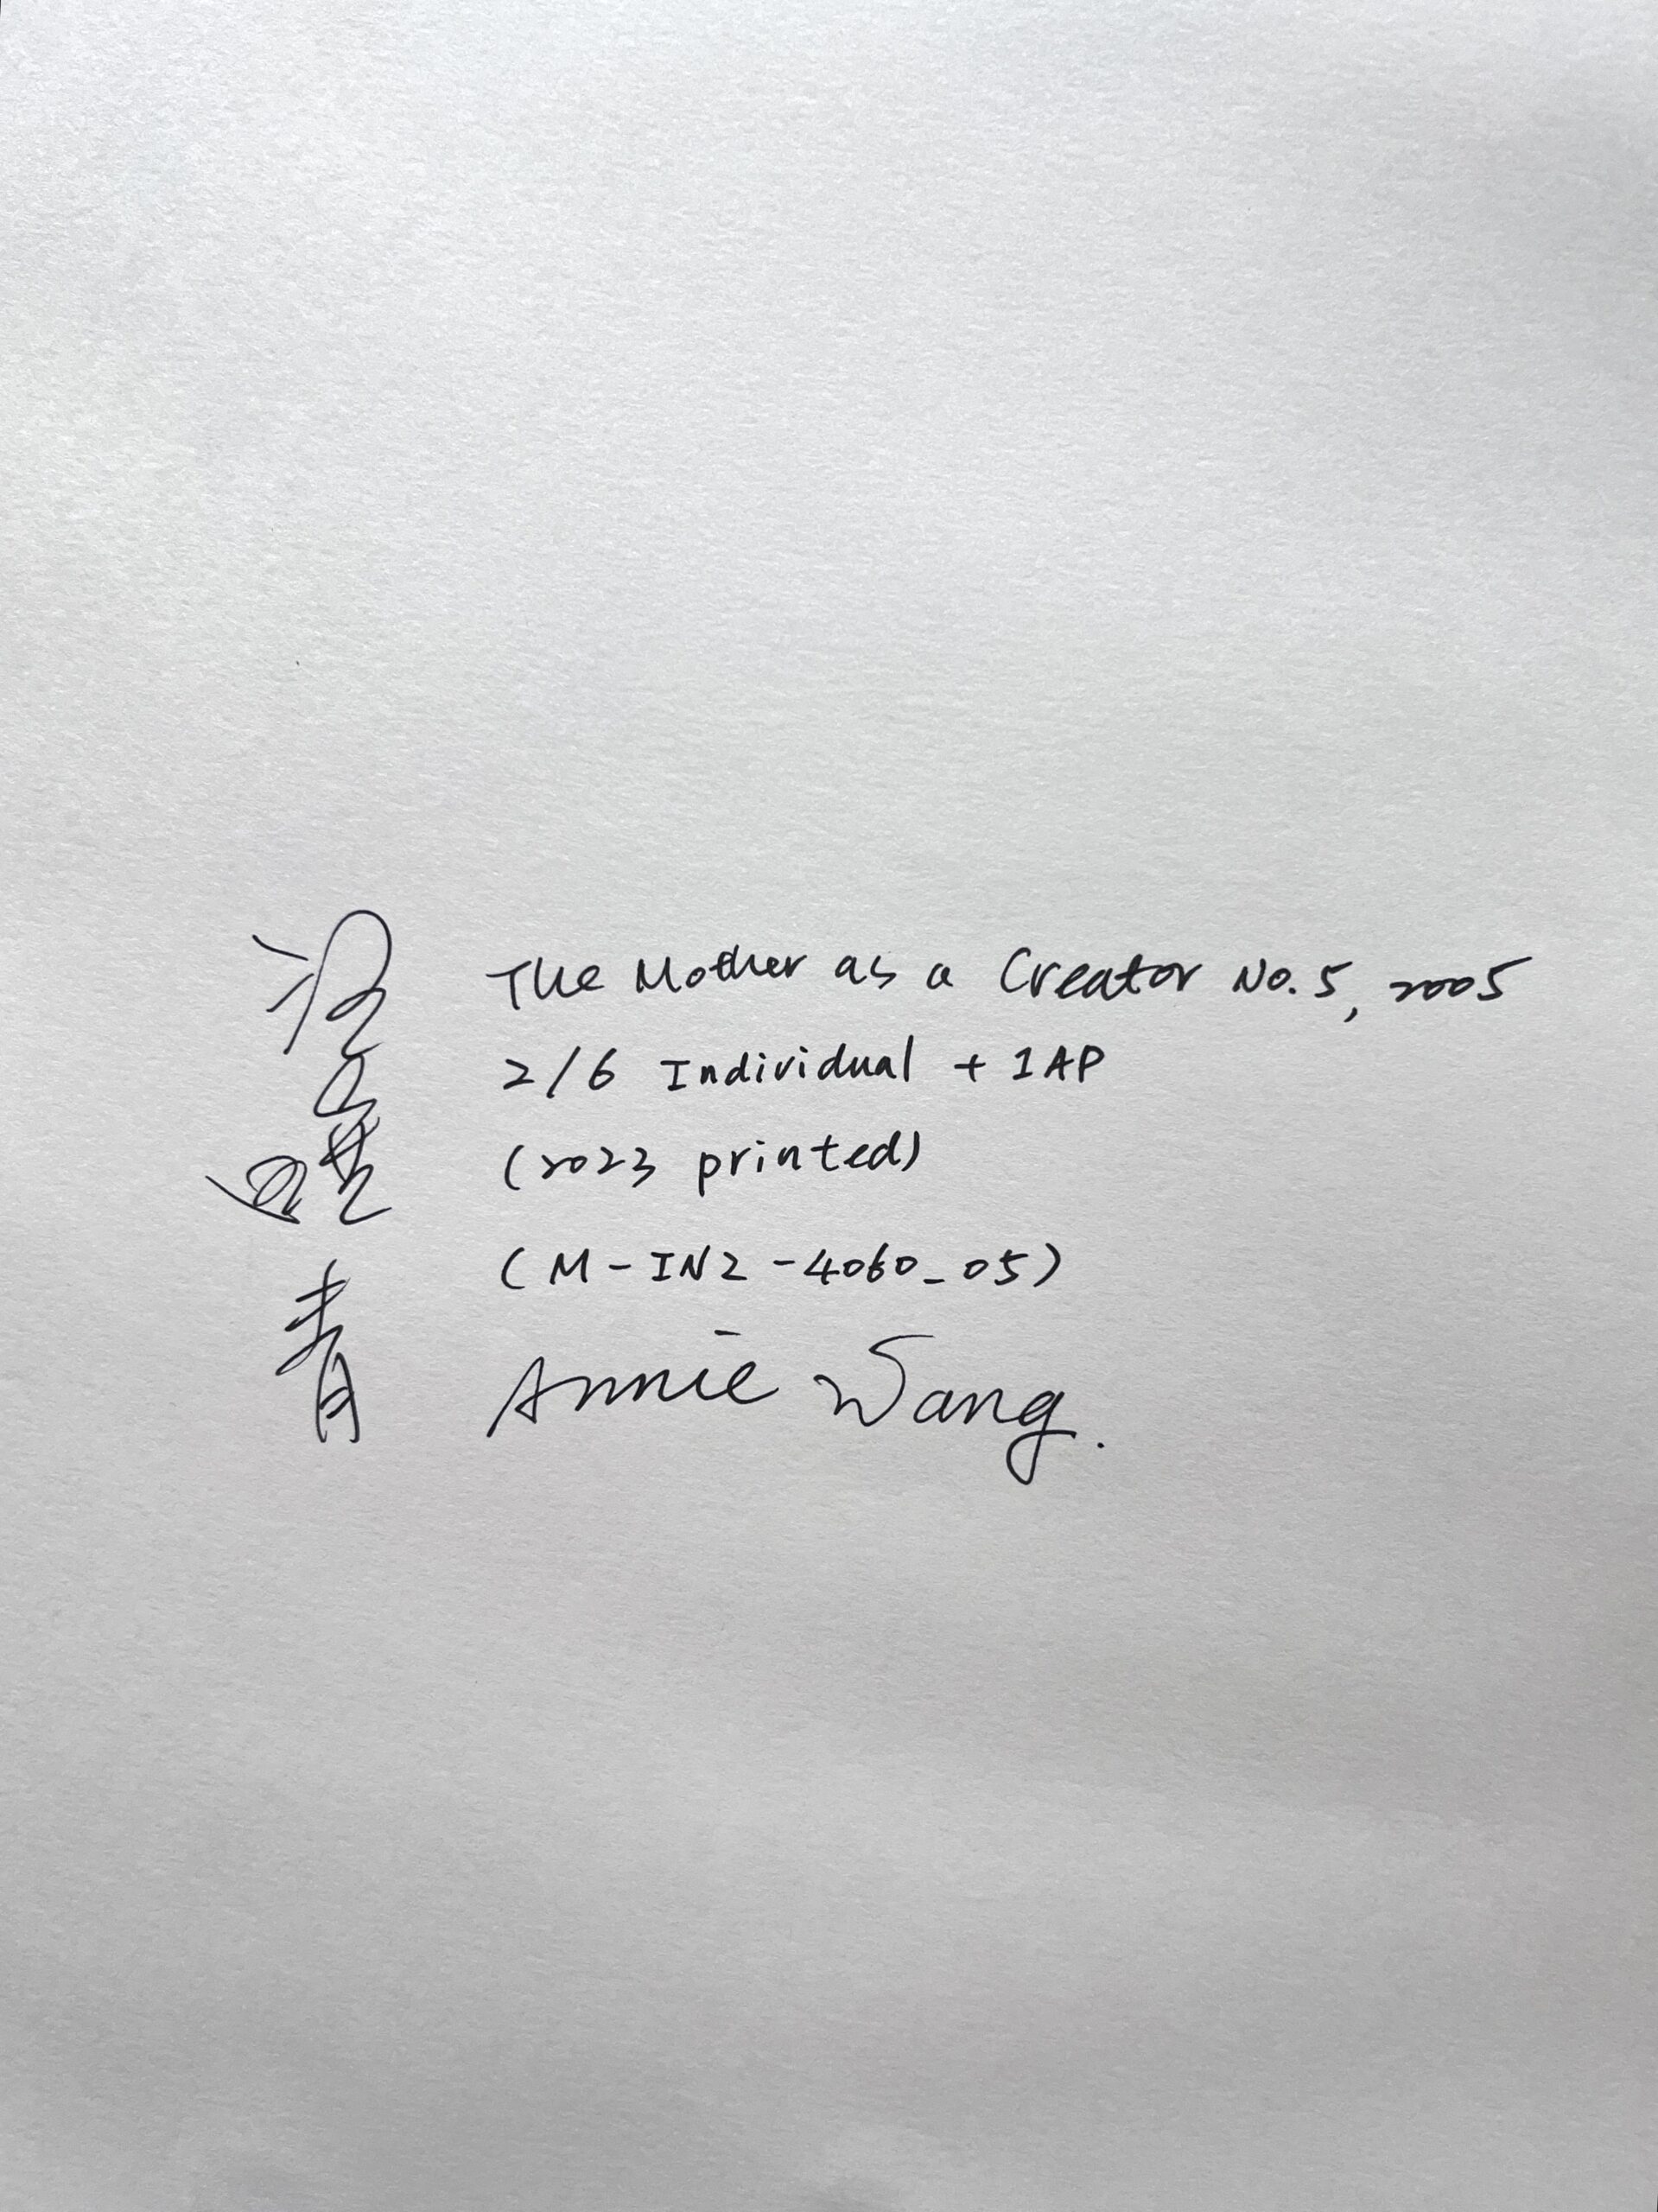 汪曉青
The Mother as a Creator No. 5, 2005
2/6 Individual + 1AP
(2023 printed)
(M-IN2-4060_05)
Annie Wang.